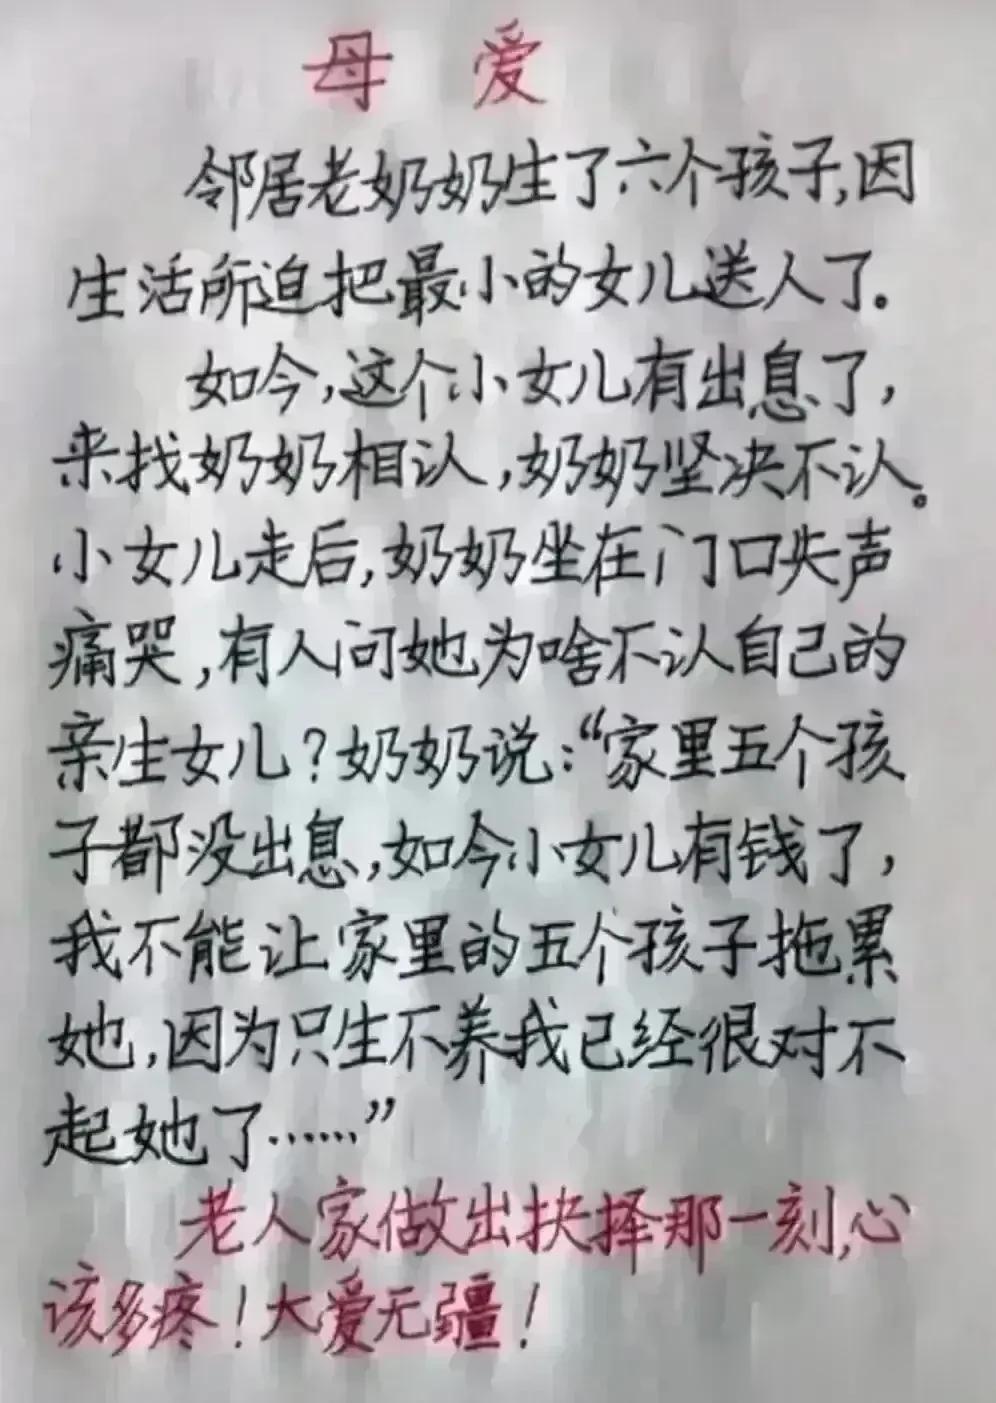 母 爱
邻居老奶奶生了六个孩子,因
生活所迫把最小的女儿送人了。
如今,这个小女儿有出息了,
来找奶奶相认,奶奶坚决不认。
小女儿走后,奶奶坐在门口失声
痛哭,有人问她为啥不认自己的
亲生女儿?奶奶说:“家里五个孩
子都没出息,如今小女儿有钱了,
我不能让家里的五个孩子拖累
她,因为只生不养我已经很对不
起她了……”
老人家做出抉择那一刻,心
该多疼!大爱无疆!